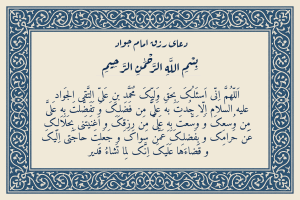 دعای رزق امام جواد
بِسْمِ اللَّهِ الرَّحْمَٰنِ الرَّحِيمِ
اَللّهُمَّ اِنّى اَسئَلُكَ بِحَقِ وَلِيِّكَ مُحَمَّدِ بنِ عَلِىِّ التَّقِىِّ الجَوادِ
عليه السلام اِلّا جُدتَ بِهِ عَلَىَّ مِن فَضلِكَ وَ تَفَضَّلتَ بِهِ عَلَىَّ
مِن وُسعِكَ وَ وَسَّعتَ بِهِ عَلَىَّ مِن رِزقِكَ وَ اَغنَيتَنى بِحَلالِكَ
عَن حَرامِكَ وَ بِفَضلِكَ عَمَّن سِواكَ وَ جَعَلتَ حاجَتى اِلَيكَ
وَ قَضاءَها عَلَيكَ اِنَّكَ لِما تَشاءُ قَدير